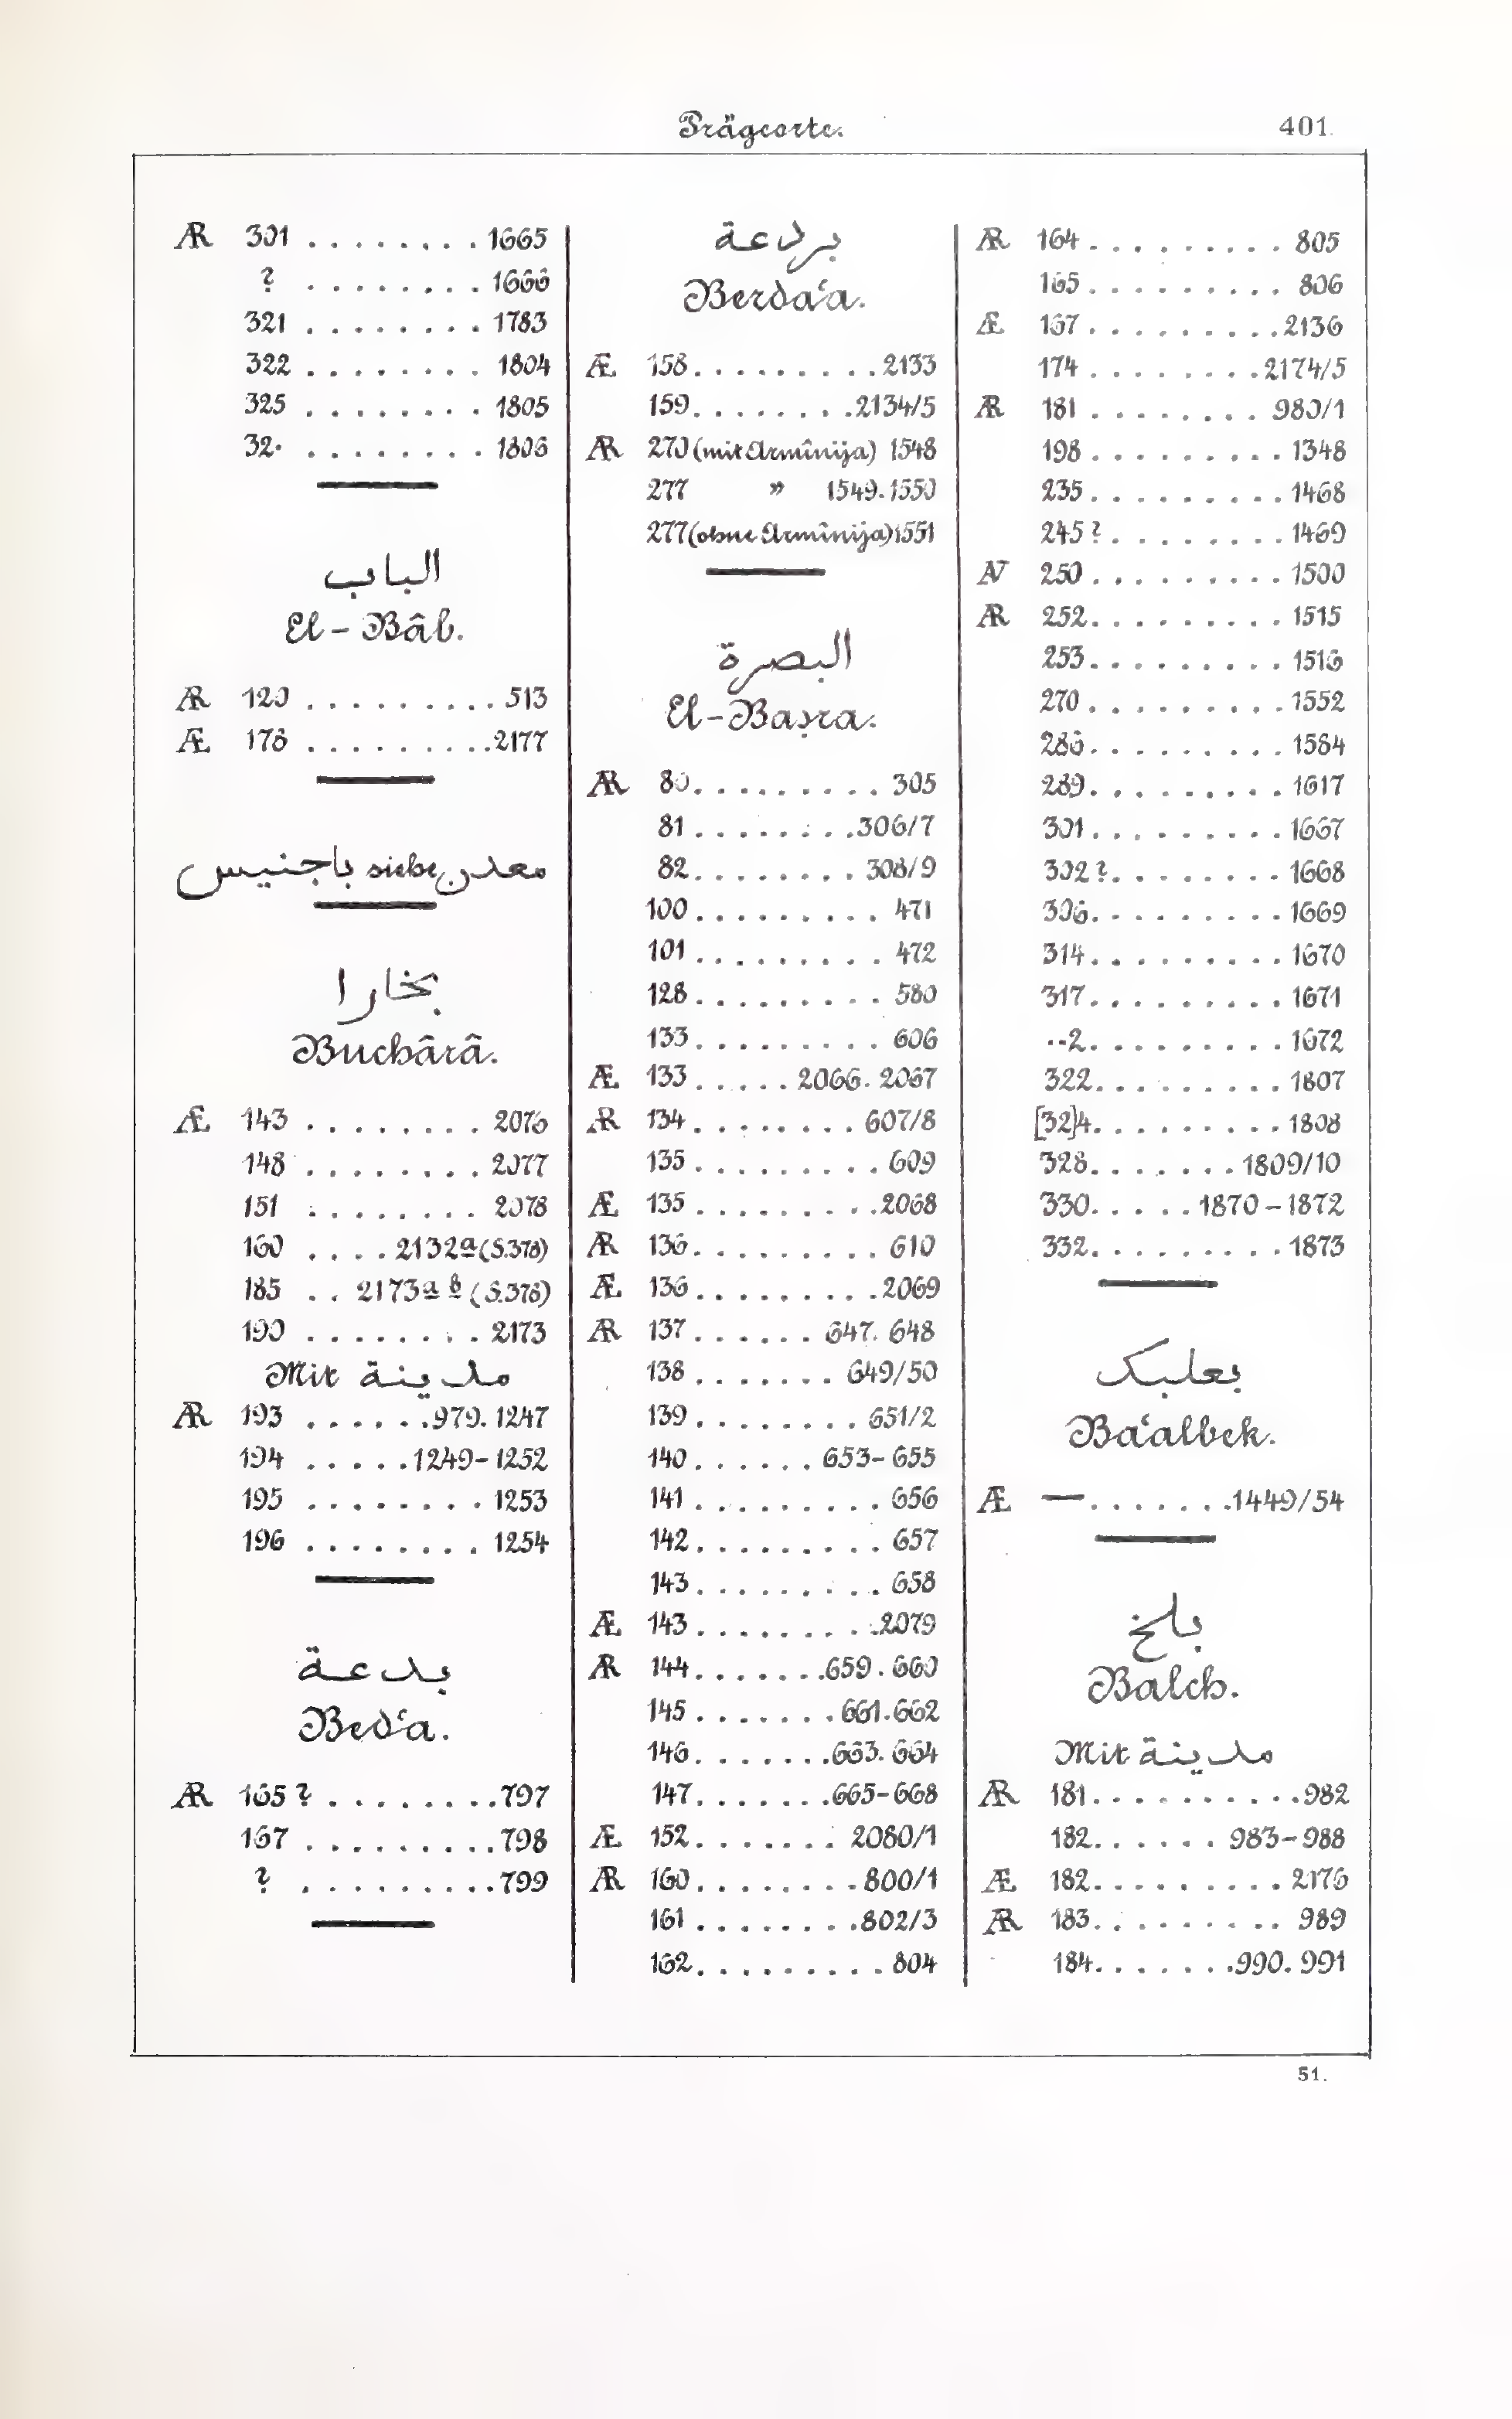 Prägeorte.
401.
AR 301 ........ 1665
? ........ 1666
321 ........ 1783
322 ........ 1804
325 ........ 1805
32· ........ 1806
الباب
El-Bâb.
AR 120 .......... 513
Æ 176 .......... 2177
معدن siehe باجنيس
بخارا
Buchârâ.
Æ 143 ........ 2076
148 ........ 2077
151 ........ 2078
160 .... 2132ª (S.378)
185 .. 2173ª ᵇ (S.378)
190 ........ 2173
Mit مدينة
AR 193 ...... 979. 1247
194 ..... 1249-1252
195 ........ 1253
196 ........ 1254
بدعة
Bed‘a.
AR 165? ........ 797
167 ......... 798
? ......... 799
بردعة
Berda‘a.
Æ 158 ......... 2133
159 ........ 2134/5
AR 270 (mit Armînîja) 1548
277 » 1549. 1550
277 (ohne Armînîja) 1551
البصرة
El-Baṣra.
AR 80 ......... 305
81 ........ 306/7
82 ........ 308/9
100 ......... 471
101 ......... 472
128 ......... 580
133 ......... 606
Æ 133 ..... 2066. 2067
AR 134 ........ 607/8
135 ......... 609
Æ 135 ......... 2068
AR 136 ......... 610
Æ 136 ......... 2069
AR 137 ...... 647. 648
138 ....... 649/50
139 ........ 651/2
140 ...... 653-655
141 ......... 656
142 ......... 657
143 ......... 658
Æ 143 ......... 2079
AR 144 ....... 659. 660
145 ....... 661. 662
146 ....... 663. 664
147 ....... 665-668
Æ 152 ....... 2080/1
AR 160 ........ 800/1
161 ........ 802/3
162 ......... 804
AR 164 ......... 805
165 ......... 806
Æ 167 ......... 2136
174 ........ 2174/5
AR 181 ........ 980/1
198 ......... 1348
235 ......... 1468
245? ........ 1469
AV 250 ......... 1500
AR 252 ......... 1515
253 ......... 1516
270 ......... 1552
286 ......... 1584
289 ......... 1617
301 ......... 1667
302? ........ 1668
306 ......... 1669
314 ......... 1670
317 ......... 1671
··2 ......... 1672
322 ......... 1807
[32]4 ......... 1808
328 ....... 1809/10
330 ..... 1870-1872
332 ......... 1873
بعلبك
Ba‘albek.
Æ — ....... 1449/54
بلخ
Balch.
Mit مدينة
AR 181 .......... 982
182 ...... 983-988
Æ 182 ......... 2176
AR 183 ......... 989
184 ....... 990. 991
51.